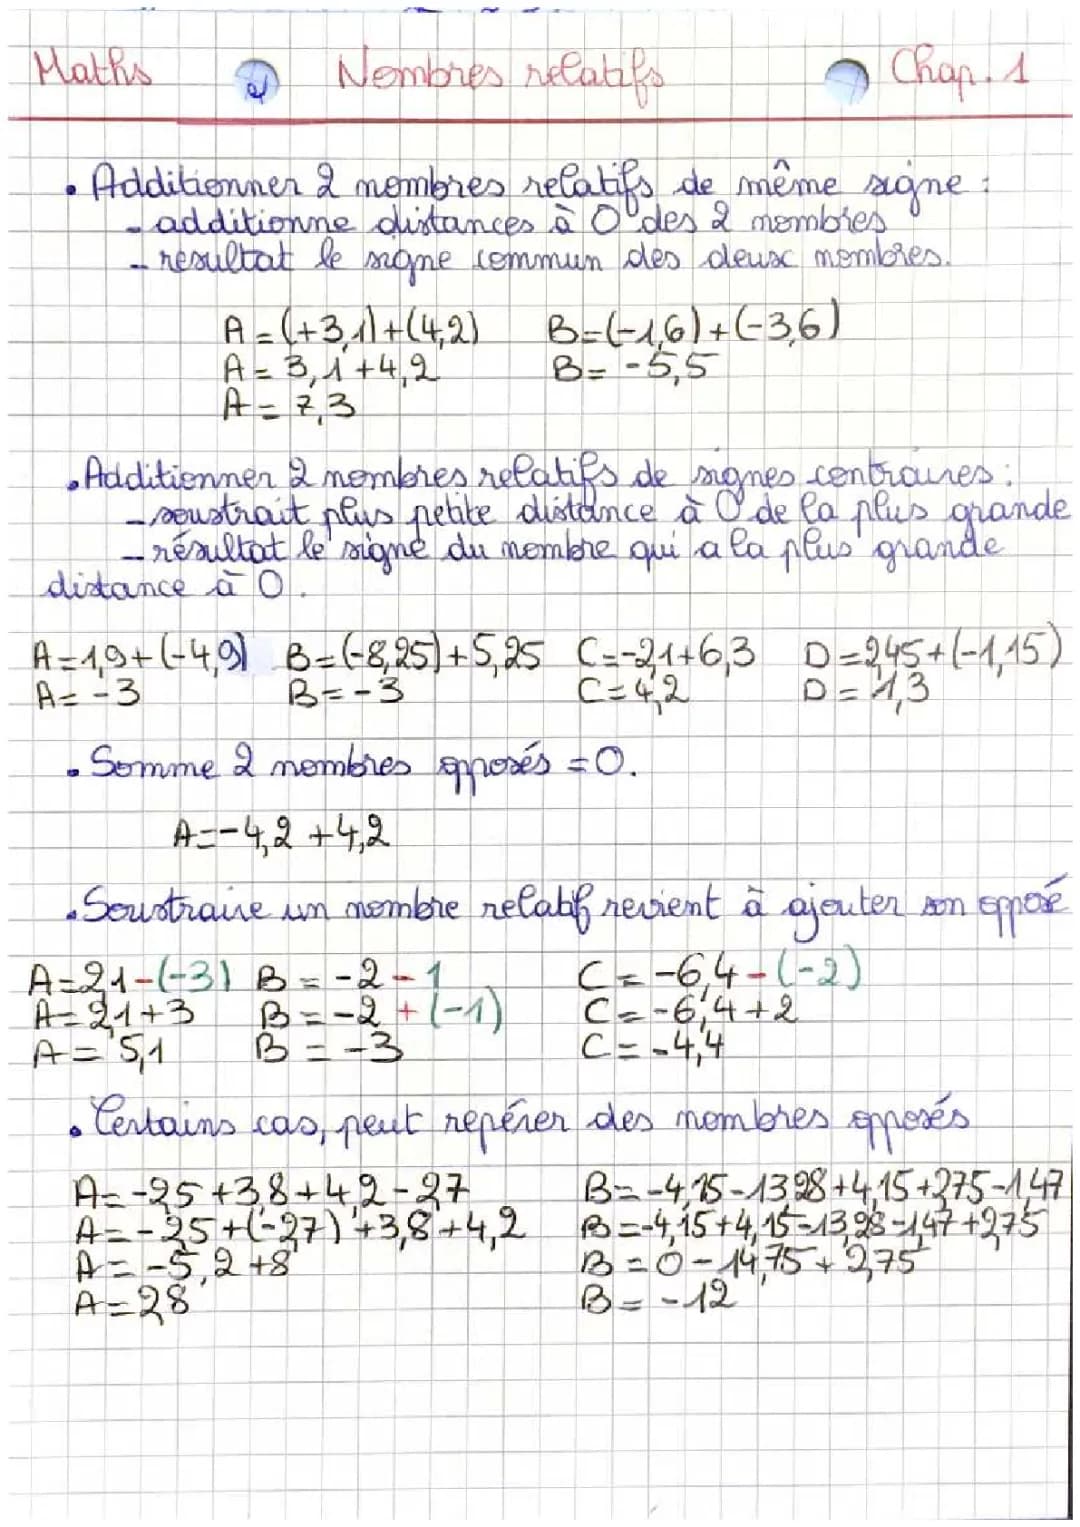 Maths Nombres relatifs Chap. 1
• Additionner 2 nombres relatifs de même signe :
- additionne distances à 0 des 2 nombres
- résultat le signe commun des deux nombres.
A = (+3,1)+(4,2) B=(-1,6)+(-3,6)
A = 3,1+4,2 B= -5,5
A = 7,3
• Additionner 2 nombres relatifs de signes contraires :
- soustrait plus petite distance à 0 de la plus grande
- résultat le signe du nombre qui a la plus grande
distance à 0.
A=1,9+(-4,9) B=(-8,25)+5,25 C=-2,1+6,3 D=2,45+(-1,15)
A= -3 B= -3 C= 4,2 D= 1,3
• Somme 2 nombres opposés = 0.
A=-4,2 +4,2
• Soustraire un nombre relatif revient à ajouter son opposé
A=2,1-(-3) B = -2 - 1 C = -6,4-(-2)
A= 2,1+3 B = -2 + (-1) C = -6,4+2
A = 5,1 B = -3 C = -4,4
• Certains cas, peut repérer des nombres opposés
A= -2,5+3,8+4,2-2,7 B= -4,15-13,28+4,15+2,75-1,47
A= -2,5+(-2,7)+3,8+4,2 B=-4,15+4,15-13,28-1,47+2,75
A = -5,2+8 B = 0-14,75+2,75
A=2,8 B= -12